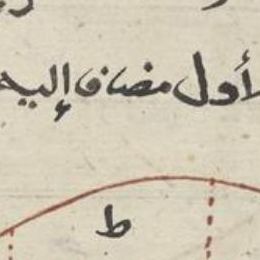 لأول مضاف إليه
ط